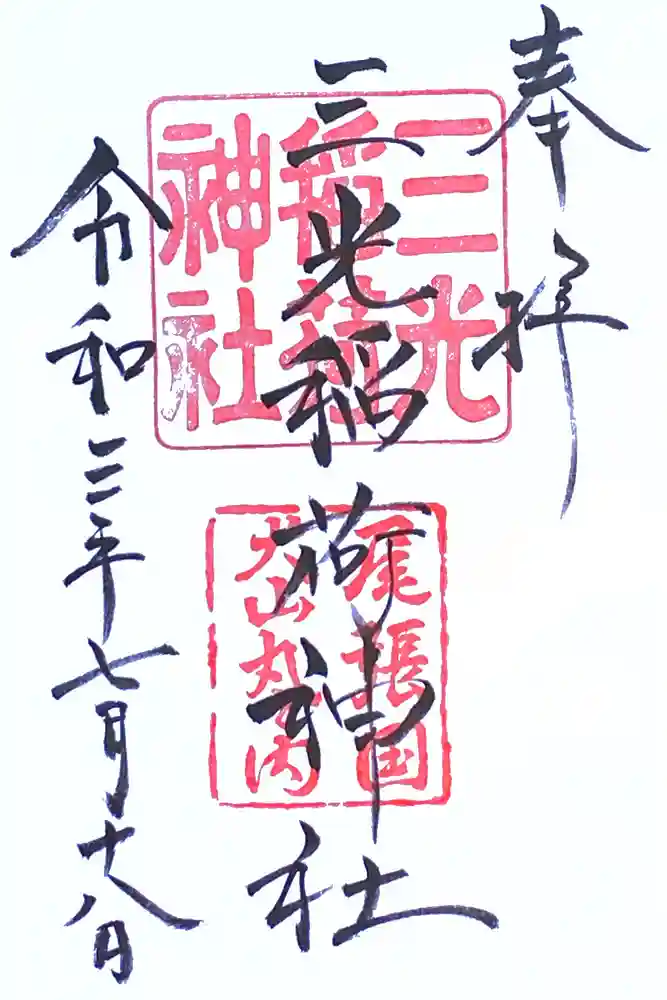 奉拝
三光稲荷神社
三光
稲荷
神社
尾張国
犬山丸の内
令和三年七月十八日